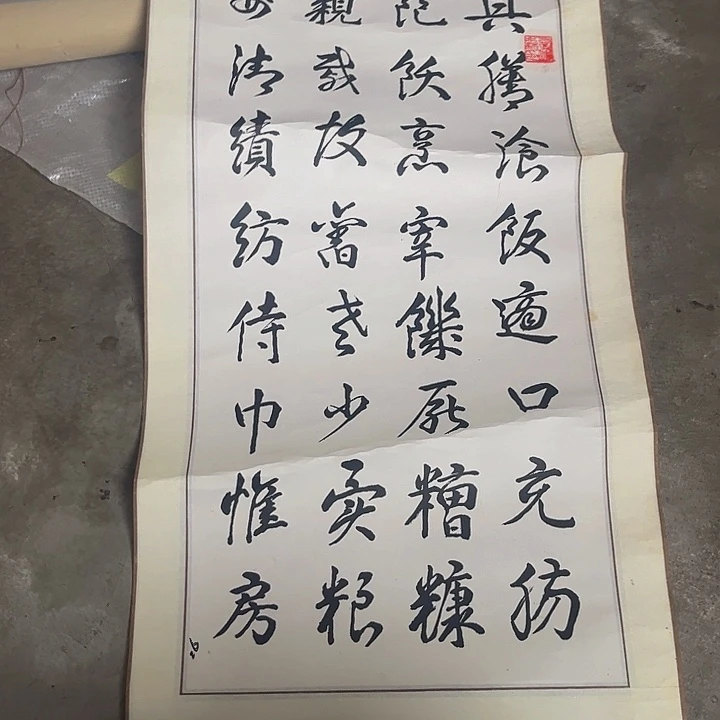 具膳湌飯適口充腸
飽飫烹宰饑厭糟糠
親戚故舊老少異粮
妾御績紡侍巾帷房